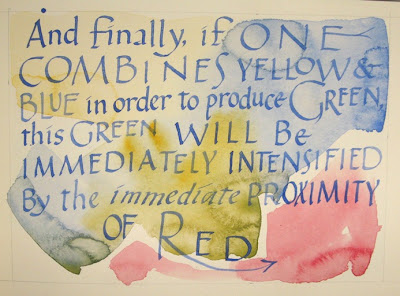 And finally, if ONE
COMBINES YELLOW &
BLUE in order to produce GREEN,
this GREEN WILL Be
IMMEDIATELY INTENSIFIED
By the immediate PROXIMITY
OF RED